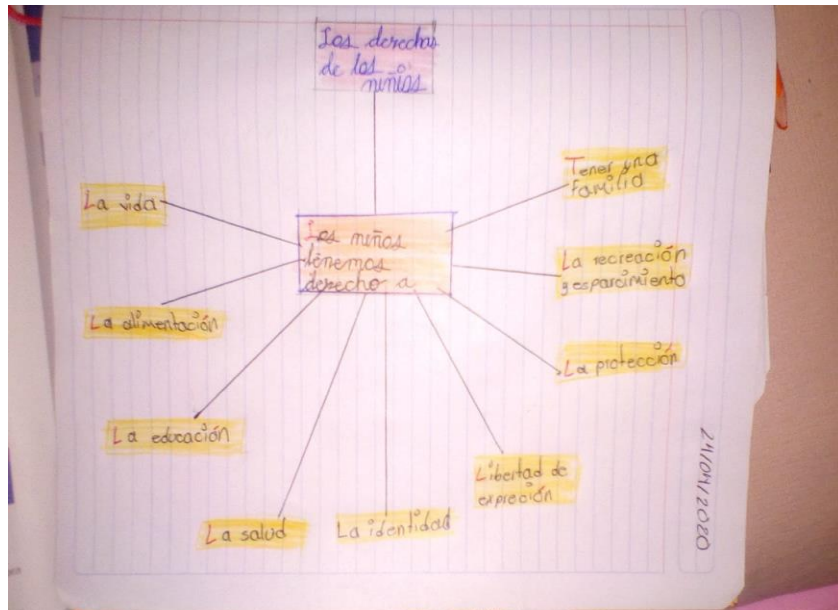 Los derechos
de los
niños
Los niños
tenemos
derecho a
La vida
La alimentación
La educación
La salud
La identidad
Libertad de
expreción
La protección
La recreación
y esparcimiento
Tener una
familia
24/04/2020